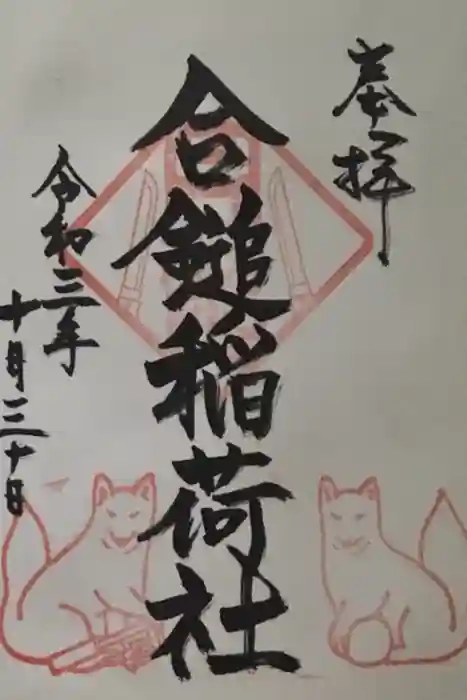 奉拝
合鎚稲荷社
令和三年
十月三十日